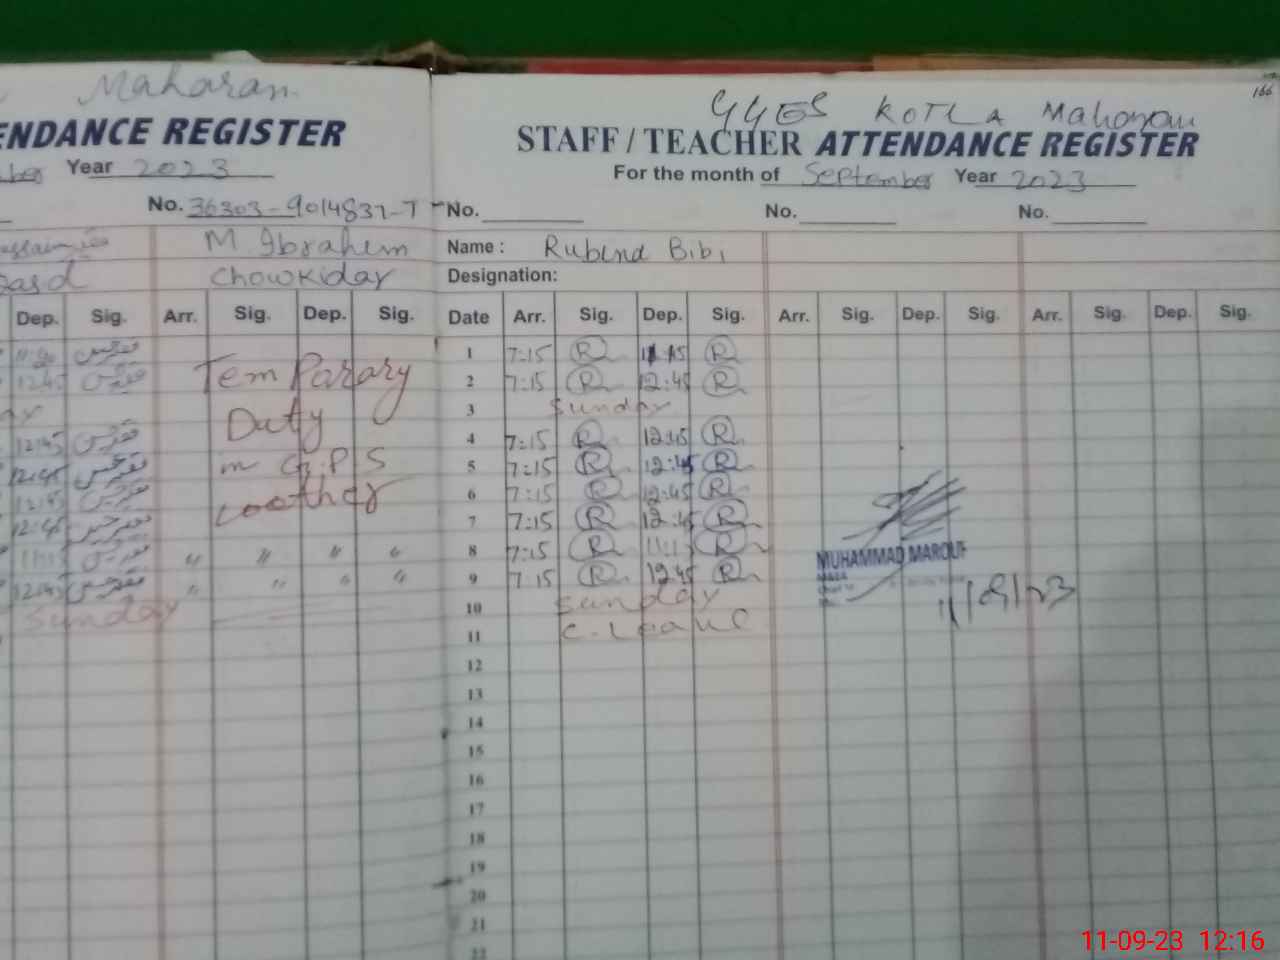 Maharan
ENDANCE REGISTER
Year 2023
No. 36303-9014837-T
M Ibrahem
Chowkidar
Dep. Sig. Arr. Sig. Dep. Sig.
Temparary
12:45
Duty
12:45
in G.P.S
12:45
12:45
12:45
11:15 " " " "
12:45 " " " "
Sunday
166
GGES KOTLA Maharan
STAFF / TEACHER ATTENDANCE REGISTER
For the month of September Year 2023
No. No. No.
Name : Rubina Bibi
Designation:
Date Arr. Sig. Dep. Sig. Arr. Sig. Dep. Sig. Arr. Sig. Dep. Sig.
1 7:15 R 11:15 R
2 7:15 R 12:45 R
3 Sunday
4 7:15 R 12:45 R
5 7:15 R 12:45 R
6 7:15 R 12:45 R
7 7:15 R 12:45 R
8 7:15 R 11:15 R
9 7:15 R 12:45 R
10 Sunday
11 C. Leave
12
13
14
15
16
17
18
19
20
21
22
MUHAMMAD MAROUF
11/9/23
11-09-23 12:16